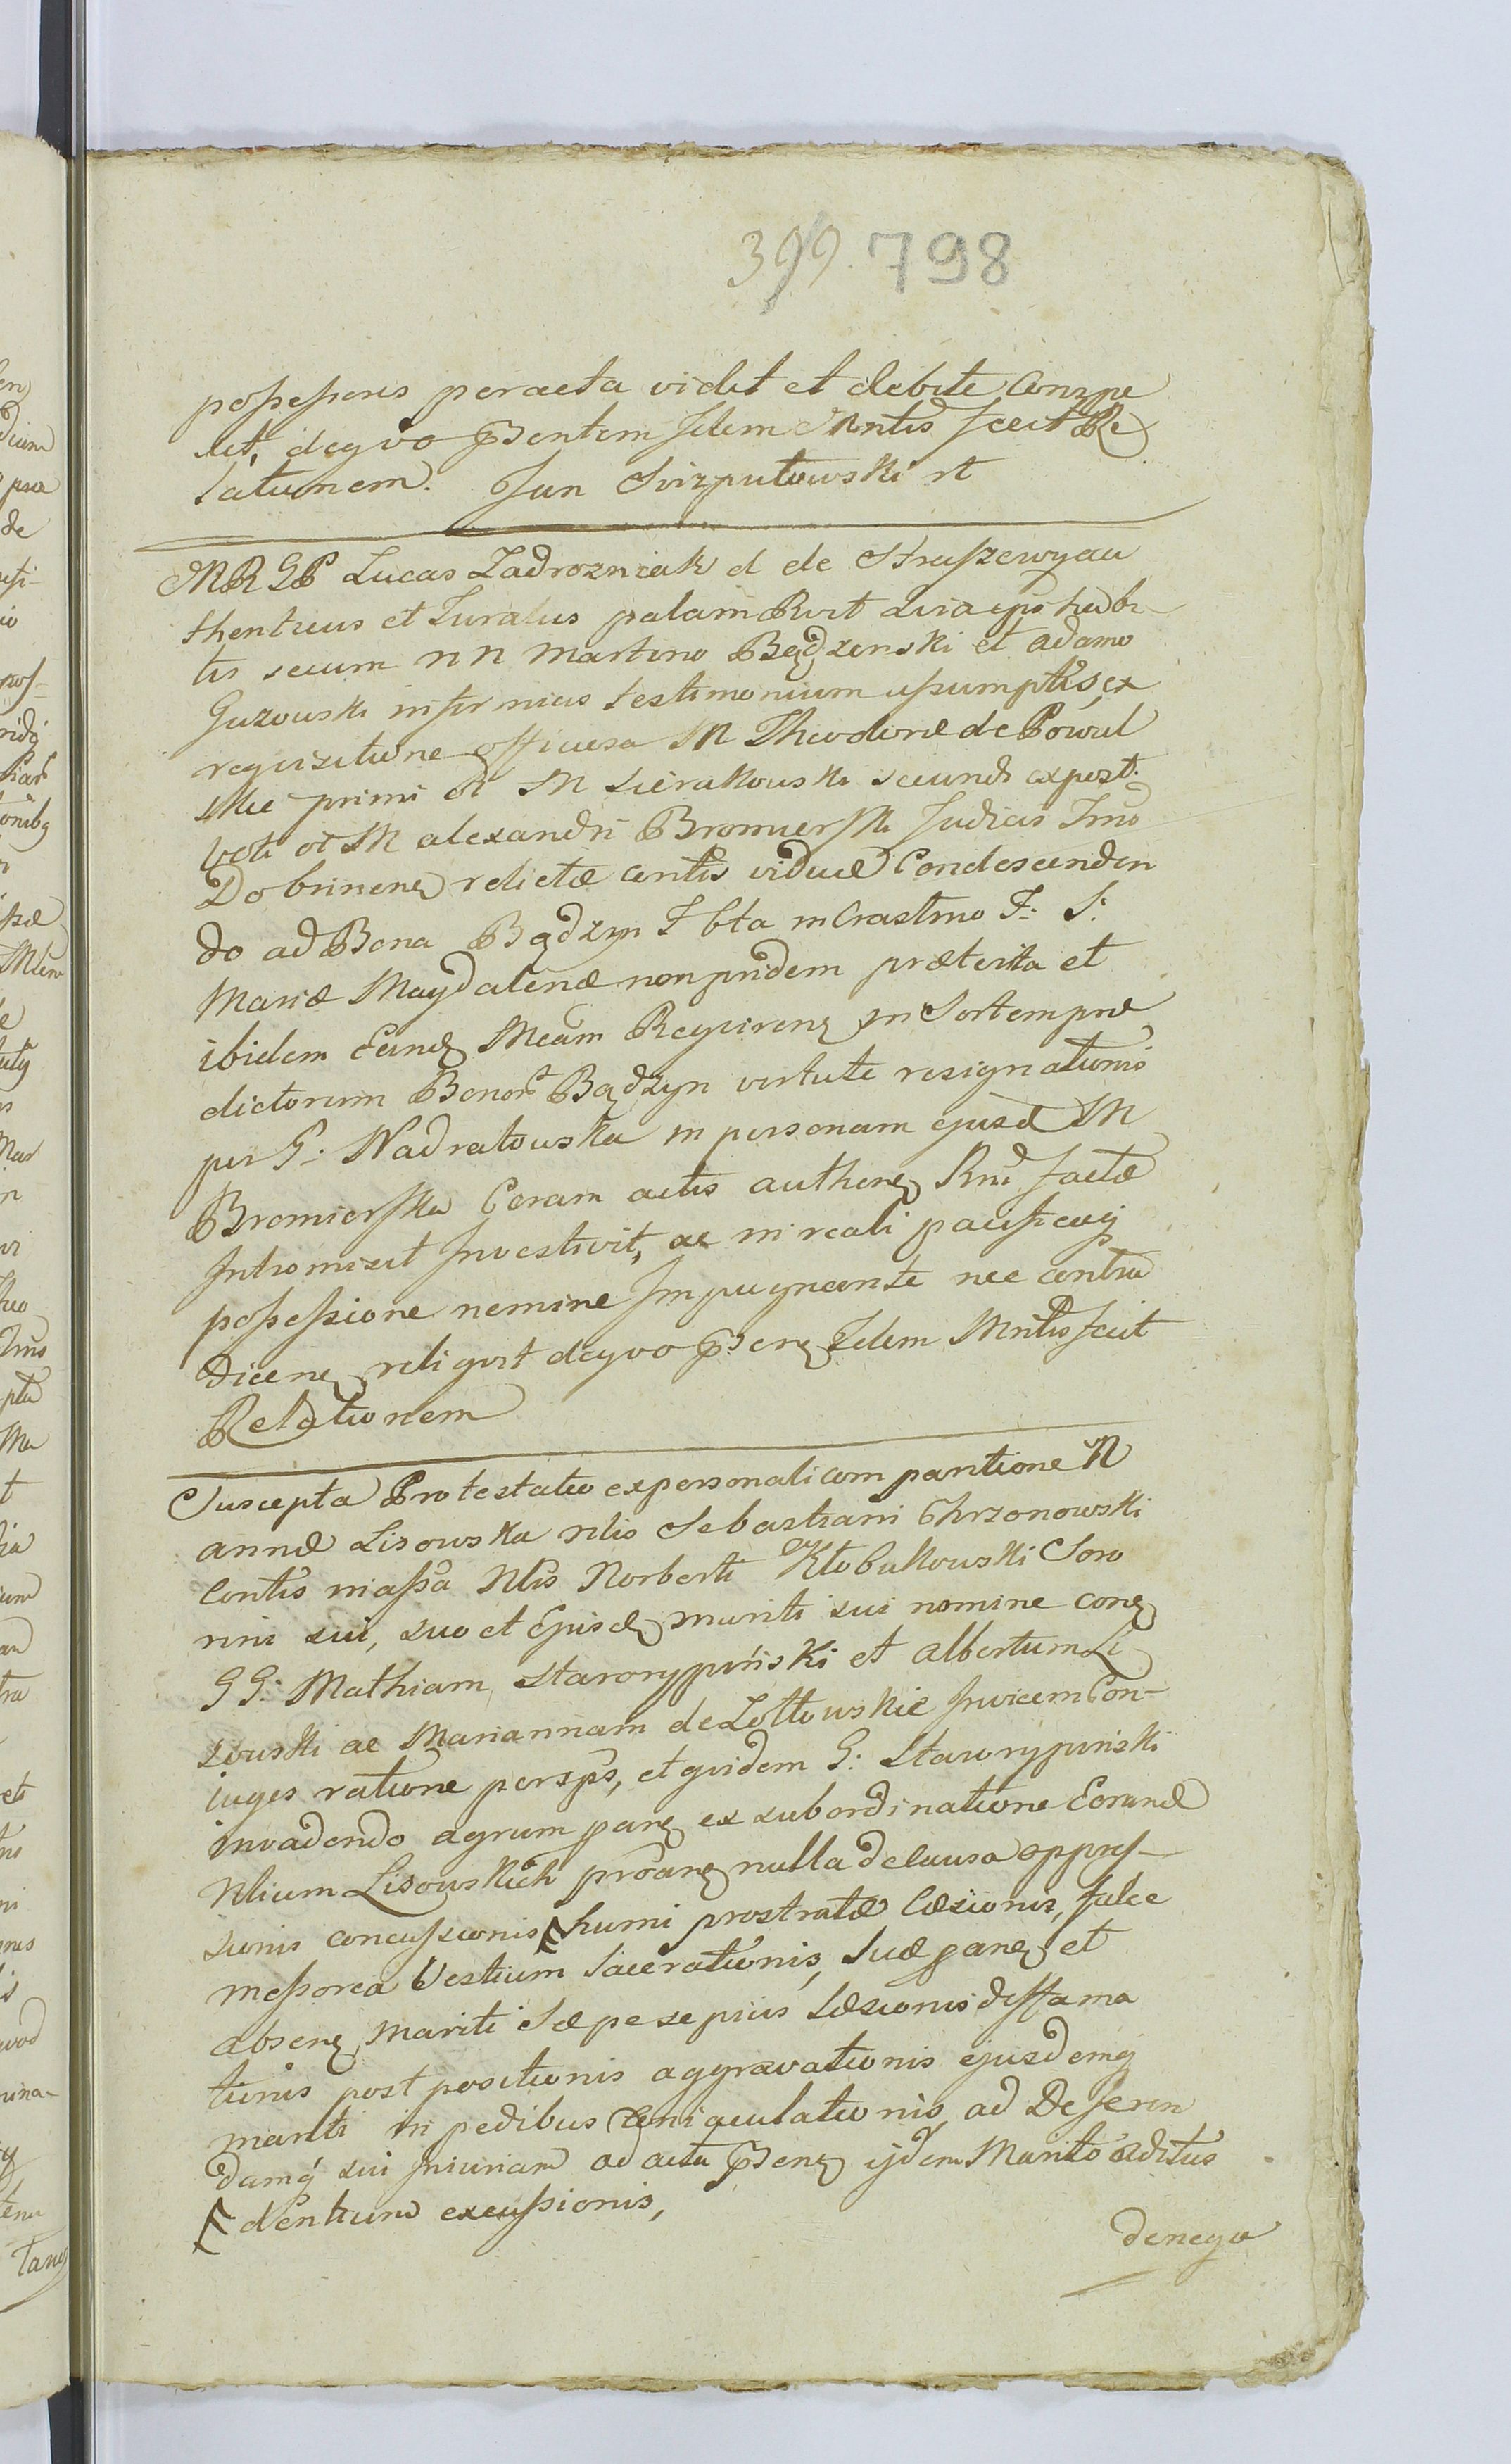 399. 798
possessens peracta vidit et debite Conspe
xit, deqvo Psentem Idem Mntis fecit Re
lationem. Jan Svizputowski rt
MRGP Lucas Zadrozniak d de Straszewy au
thenticus et Juratus palam Rvit Qvia ejus habi-
tis secum NN Martino Bądzenski et Adamo
Guzouski in firmius testimonium assumptis, ex
reqvisitione officiosa M Theodoræ de Powal
skie primi et M Sierakouski secundi ex post.
Voti ot M alexandri Bromierski Judicis Trrno
Dobrinenę relictæ Contis viduæ Condescenden
do ad Bona Bądzyn T bta in Crastino F: S:
Mariæ Magdalenæ non pridem præterita et
ibidem Eandę Mcam Reqvirenę in Sortem præ
dictorum Bonor Bądzyn virtute resignationis
per G: Nadratouska in personam ejusd M
Bromierska Coram actis authenę Rnd factæ
Intromisit Investivit, ac in reali pacificaq
possessione nemine Impugnante nec contra
dicenę reliqvit deqvo Psenę Idem Mntis fecit
Relationem
Suscepta Protestatio ex personali com paritione N
annæ Lisowska Nlis Sebastiani Chrzonowski
Contis in assa Nlis Norberti Kłobukouski Soro
rini sui, suo et Ejusdę mariti sui nomine conę
GG: Mathiam Starorypiński et albertum Li
souski ac Mariannam de Zołtouskie Invicem Con-
iuges ratione persps, et qvidem G: Starorypiński
invadendo agrum panę ex subordinatione Eorund
Nlium Lisouskich proanę nulla de causa oppres-
sionis concussionis humi prostratæ Cæsionis, falce
messorea Vestium Lacerationis, Suæ panę et
absenę Mariti Sæpe sepius Læsionis deffama
tionis post positionis aggravationis ejusdemq
mariti in pedibus Cenigculationis ad Deferen
damq sui Iniuriam ad acta Psenę ijdem Marito aditus
dentium excussionis,
denega